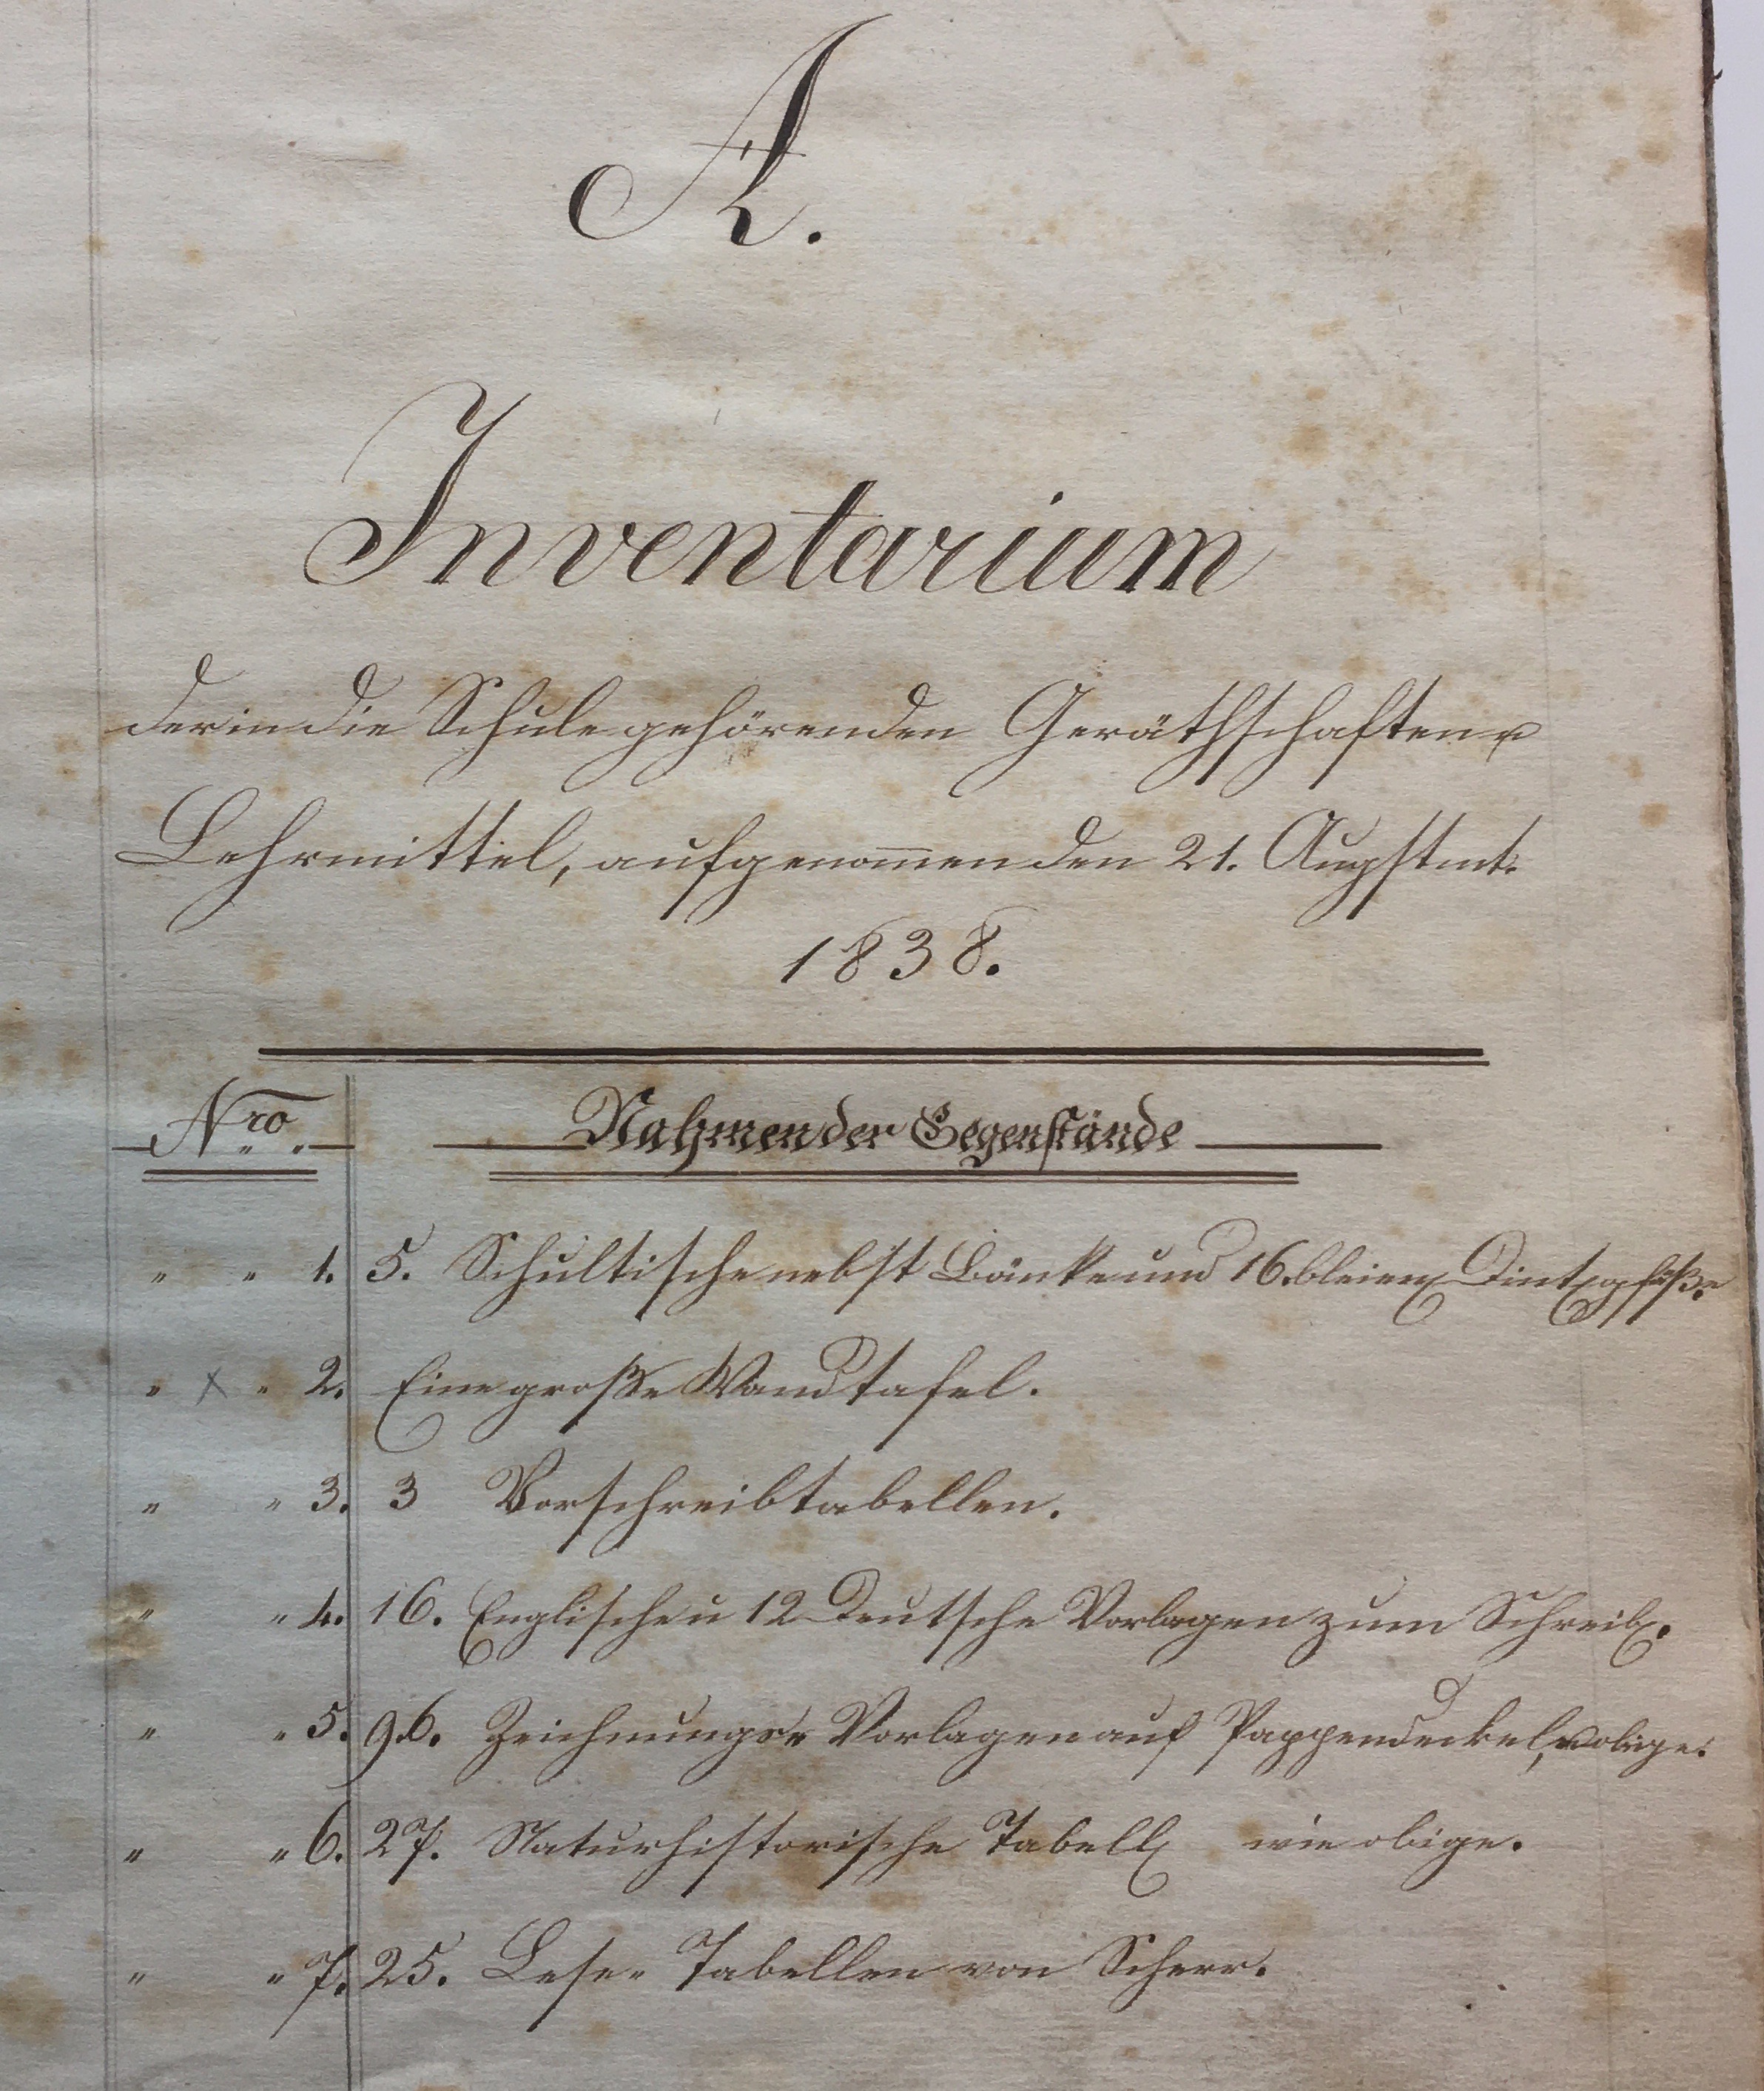 A.
Inventarium
der in die Schule gehörenden Geräthschaften u
Lehrmittel, aufgenom̄en den 21. Augstmt.
1838.
Nro. Nahmen der Gegenstände
" " 1. 5. Schultische nebst Bänke und 16. bleiern Dintengefäße
" x " 2. Eine große Wandtafel.
" " 3. 3 Vorschreibtabellen.
" " 4. 16. Englische u 12 Deutsche Vorlagen zum Schreiben.
" " 5. 96. Zeichnungs- Vorlagen auf Pappendeckel, obige.
" " 6. 27. Naturhistorische Tabellen wie obige.
" " 7. 25. Lese- Tabellen von Scherr.